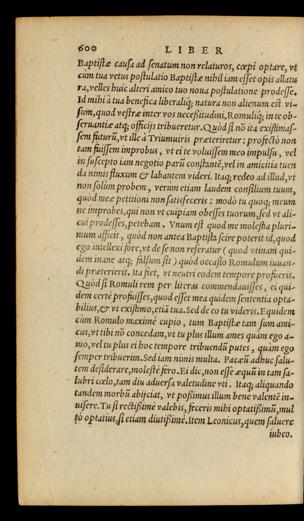 600 LIBER
Baptistæ causa ad senatum non relaturos, cœpi optare, vt
cum tua vetus postulatio Baptistæ nihil iam esset opis allatu
ra, velles huic alteri amico tuo noua postulatione prodesse.
Id mihi à tua benefica liberaliq; natura non alienum est vi-
sum, quod vestræ inter vos necessitudini, Romuliq; in te ob-
seruantiæ atq; officijs tribueretur. Quòd si nō ita existimas-
sem futurū, vt ille à Triumuiris præteriretur: profectò non
tam fuissem improbus, vt ei te voluissem meo impulsu, vel
in suscepto iam negotio parū constantē, vel in amicitia tuen
da nimis fluxum & labantem videri. Itaq; redeo ad illud, vt
non solùm probem, verùm etiam laudem consilium tuum,
quòd meæ petitioni non satisfeceris: modò tu quoq; meum
ne improbes, qui non vt cuipiam obesses tuorum, sed vt ali-
cui prodesses, petebam. Vnum est quod me molestia pluri-
mum afficit, quòd non antea Baptista scire poterit id, quod
ego intellexi fore, vt de se non referatur (quod vtinam qui-
dem inane atq; falsum sit) quàd occasio Romulum iuuan-
di præterierit. Ita fiet, vt neutri eodem tempore profueris.
Quòd si Romuli rem per literas commendauisses, ei qui-
dem certè profuisses, quod esset mea quidem sententia opta-
bilius, & vt existimo, etiā tua. Sed de eo tu videris. Equidem
cùm Romulo maximè cupio, tum Baptistæ tam sum ami-
cus, vt tibi nō concedam, vt tu plus illum ames quàm ego a-
mo, vel tu plus ei hoc tempore tribuendū putes, quàm ego
semper tribuerim. Sed iam nimis multa. Pacæū adhuc salu-
tem desiderare, molestè fero. Ei dic, non esse æquū in tam sa-
lubri cœlo, tam diu aduersa valetudine vti. Itaq; aliquando
tandem morbū abijciat, vt possimus illum bene valentē in-
uisere. Tu si rectissimè valebis, feceris mihi optatissimū, mul
tò optatius, si etiam diutissimè. Item Leonicus, quem saluere
iubeo.